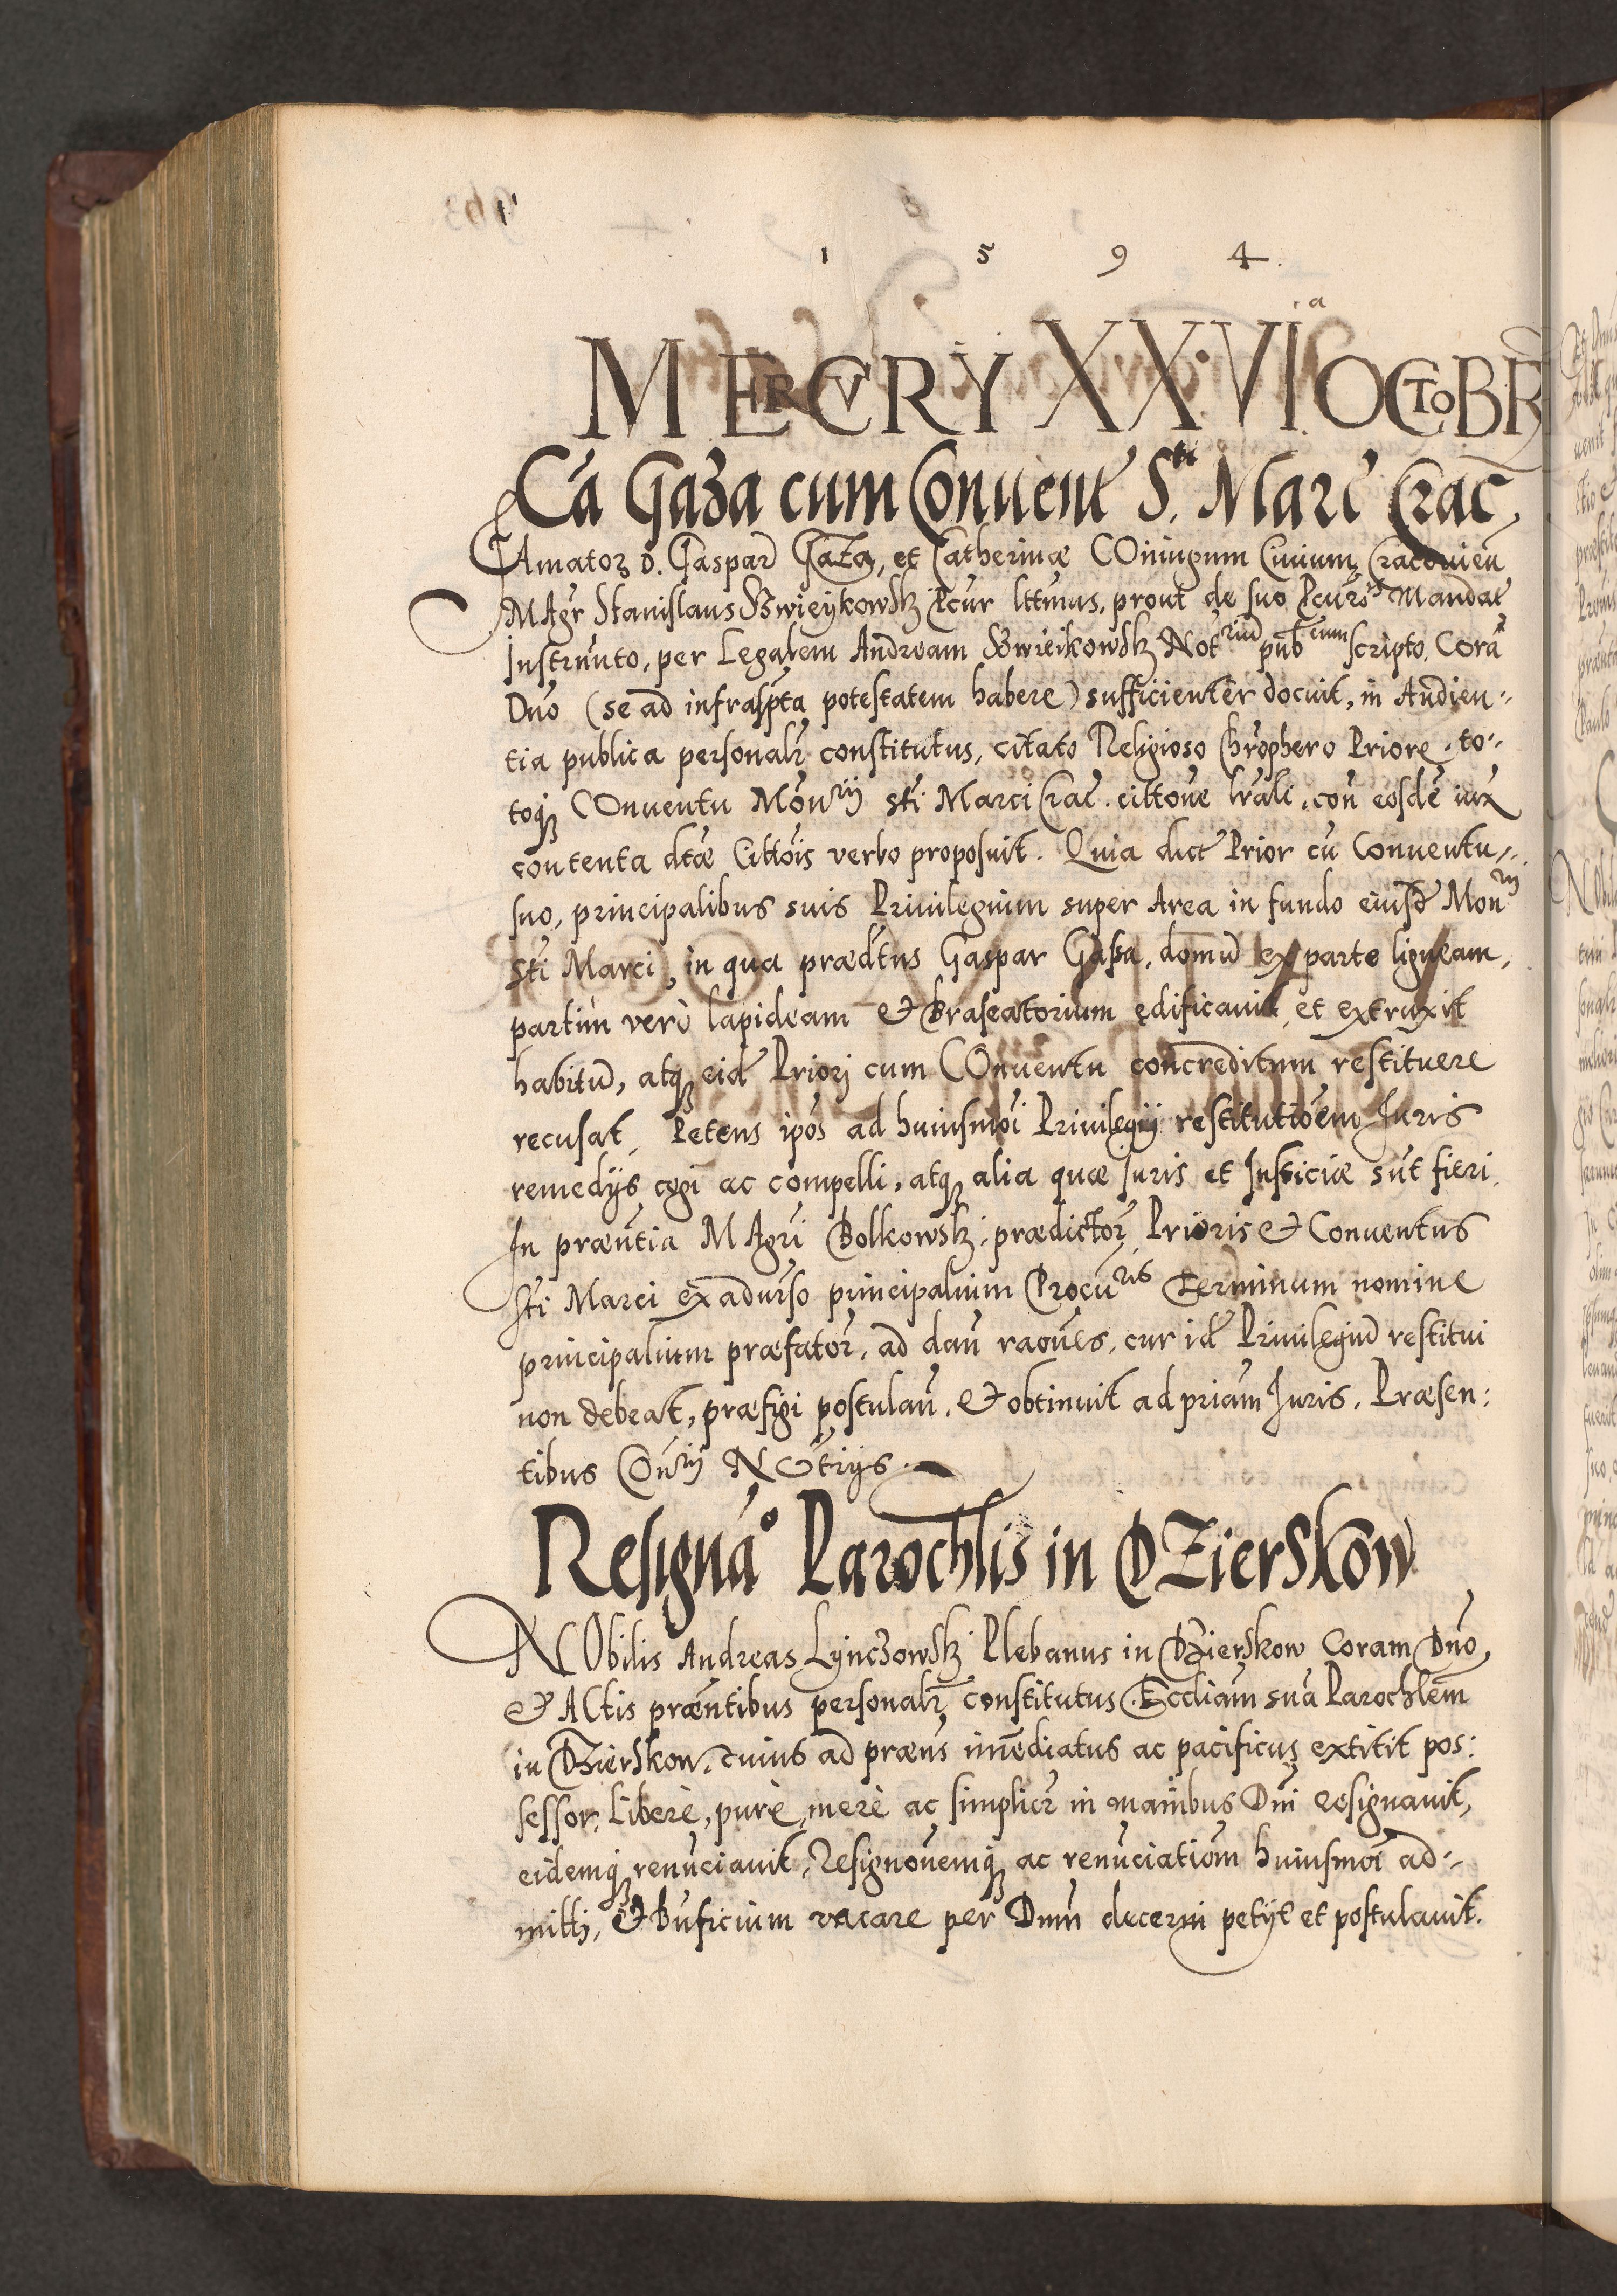 1 5 9 4
MERCVRY XX·VIa OCTOBR
Ca Gaza cum Conuent Sti Marc Crac
FAmator D. Gaspar Gaza, et Catherinæ COniugum Ciuium Cracouien
MAgr Stanislaus Swieykowsk Pcur lttmus, prout de suo Pcuris Mandat
Instruto, per Legalem Andream Swieikowsk Notrium pub eum scripto, Corā
Dno (se ad infraspta potestatem habere) sufficienter docuit, in Audien-
tia publica personalr constitutus, citato Religioso Chrophero Priore, to-
toq COnuentu Monrij Sti Marci Crac. cittone lrali, con eosdē iux
contenta dtæ Cittois verbo proposuit. Quia dict Prior cū Conuentu
suo, principalibus suis Priuilegium super Area in fundo eiusd Monrij
Sti Marci, in qua prædtus Gaspar Gaßa, domū ex parte ligneam,
partim verò lapideam & Braseatorium ędificauit, et extruxit
habitū, atq eid Priori cum COnuentu concreditum restituere
recusat, Petens ipos ad huiusmoi Priuilegij restitutioem Juris
remedijs cogi ac compelli, atq alia quæ Juris et Justiciæ sūt fieri.
In præntia MAgri Bolkowsk, prædictor Prioris & Conuentus
Sti Marci ex adurso principalium Procuris Terminum nomine
principalium præfator, ad dan raones, cur id Priuilegiū restitui
non debeat, præfigi postulaū, & obtinuit ad priam Juris. Præsen:
tibus Conrij NOtrijs.
Resignao Parochlis in DZierskow
NObilis Andreas Lynczowsk Plebanus in Dzierskow Coram Dno
& ACtis præntibus personalr constitutus Eccliam suā Parochlem
in Dzierskow, cuius ad præns immediatus ac pacificus extitit pos:
sessor, Liberè, purè, merè ac simplicr in manibus Dni resignauit,
eidemq renunciauit, Resignonemq ac renunciatiom huiusmoi ad-
mitti, & Bnficium vacare per Dnm decerni petijt et postulauit.